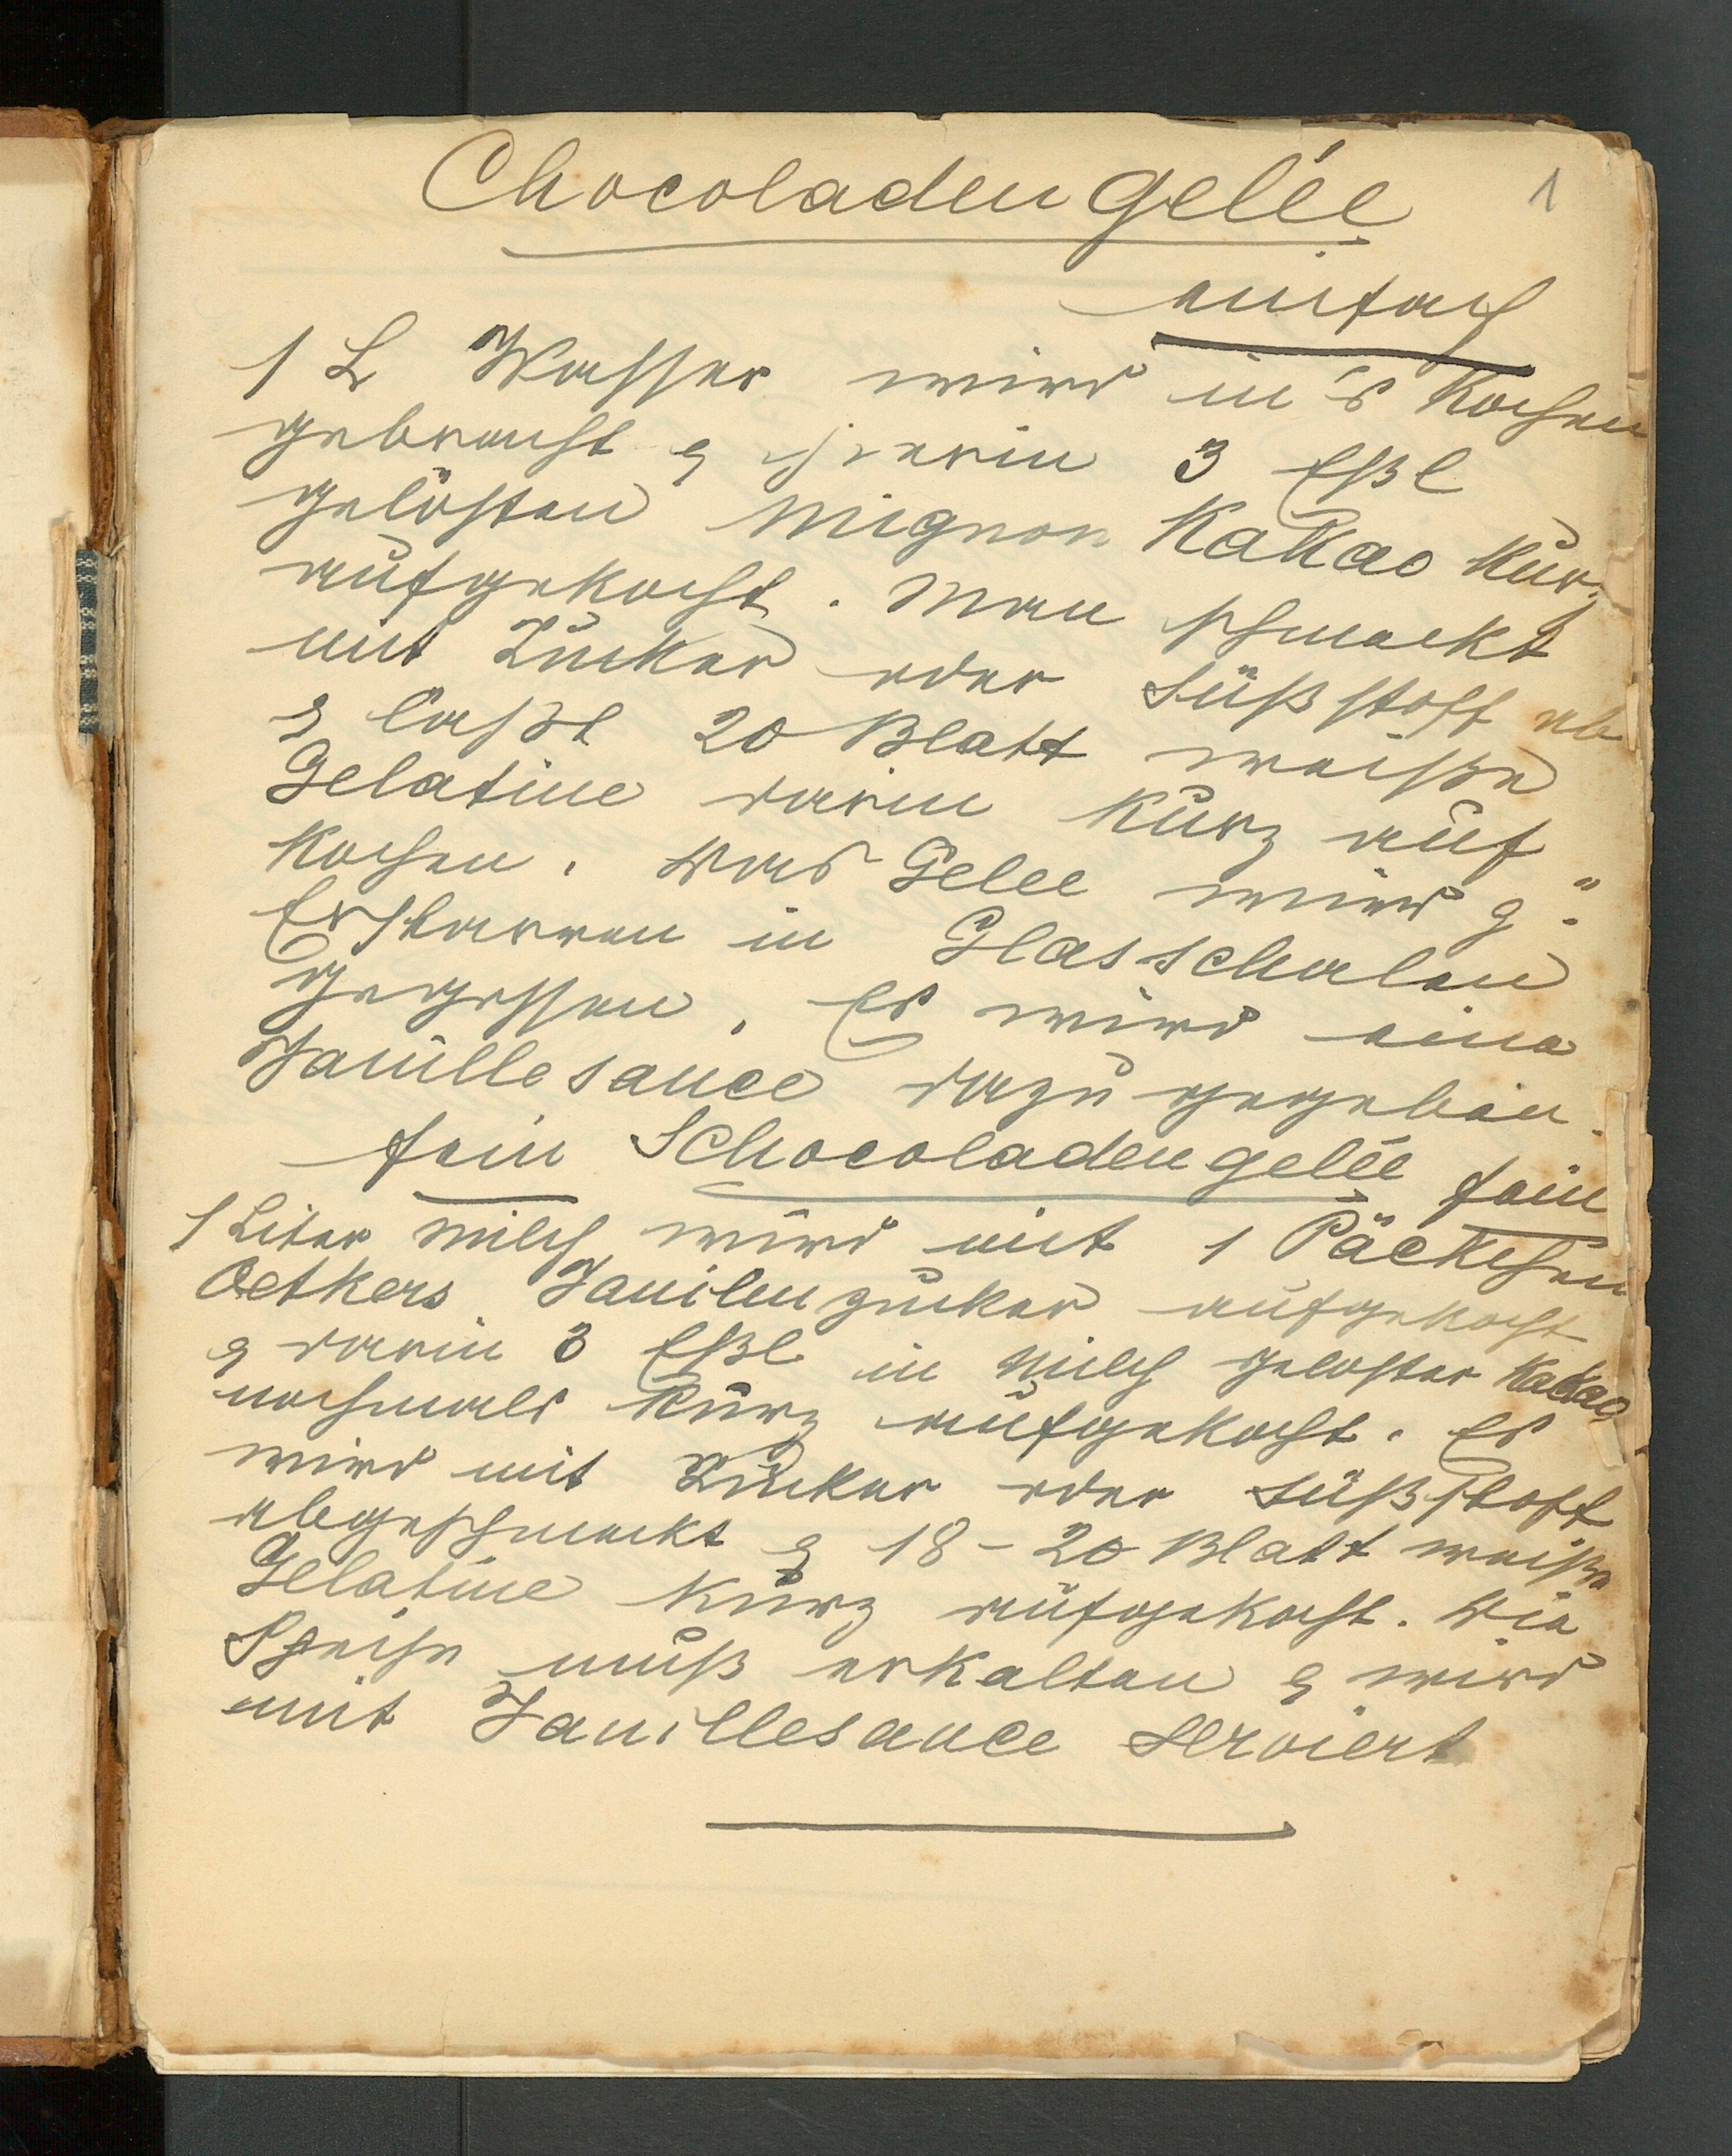 Chocoladen Gelée
1
einfach
1 L Wasser wird in's Kochen
gebracht & hierin 3 Eßl
gelösten Mignon Kakao kurz
aufgekocht. Man schmeckt
mit Zucker oder Süßstoff ab
& laßt 20 Blatt weiße
Gelatine darin kurz auf
kochen. Das Gelee wird z.
Erstarren in Glasschalen
gegossen. Es wird eine
Vanillesauce dazu gegeben.
fein Schocoladengelée fein
1 Liter Milch wird mit 1 Päckchen
Oetkers Vanilenzucker aufgekocht
& darin 3 Eßl in Milch geloster Kakao
nochmals kurz aufgekocht. Es
wird mit Zucker oder Süßstoff
abgeschmeckt & 18-20 Blatt weiße
Gelatine kurz aufgekocht. Die
Speise muß erkalten & wird
mit Vanillesauce serviert